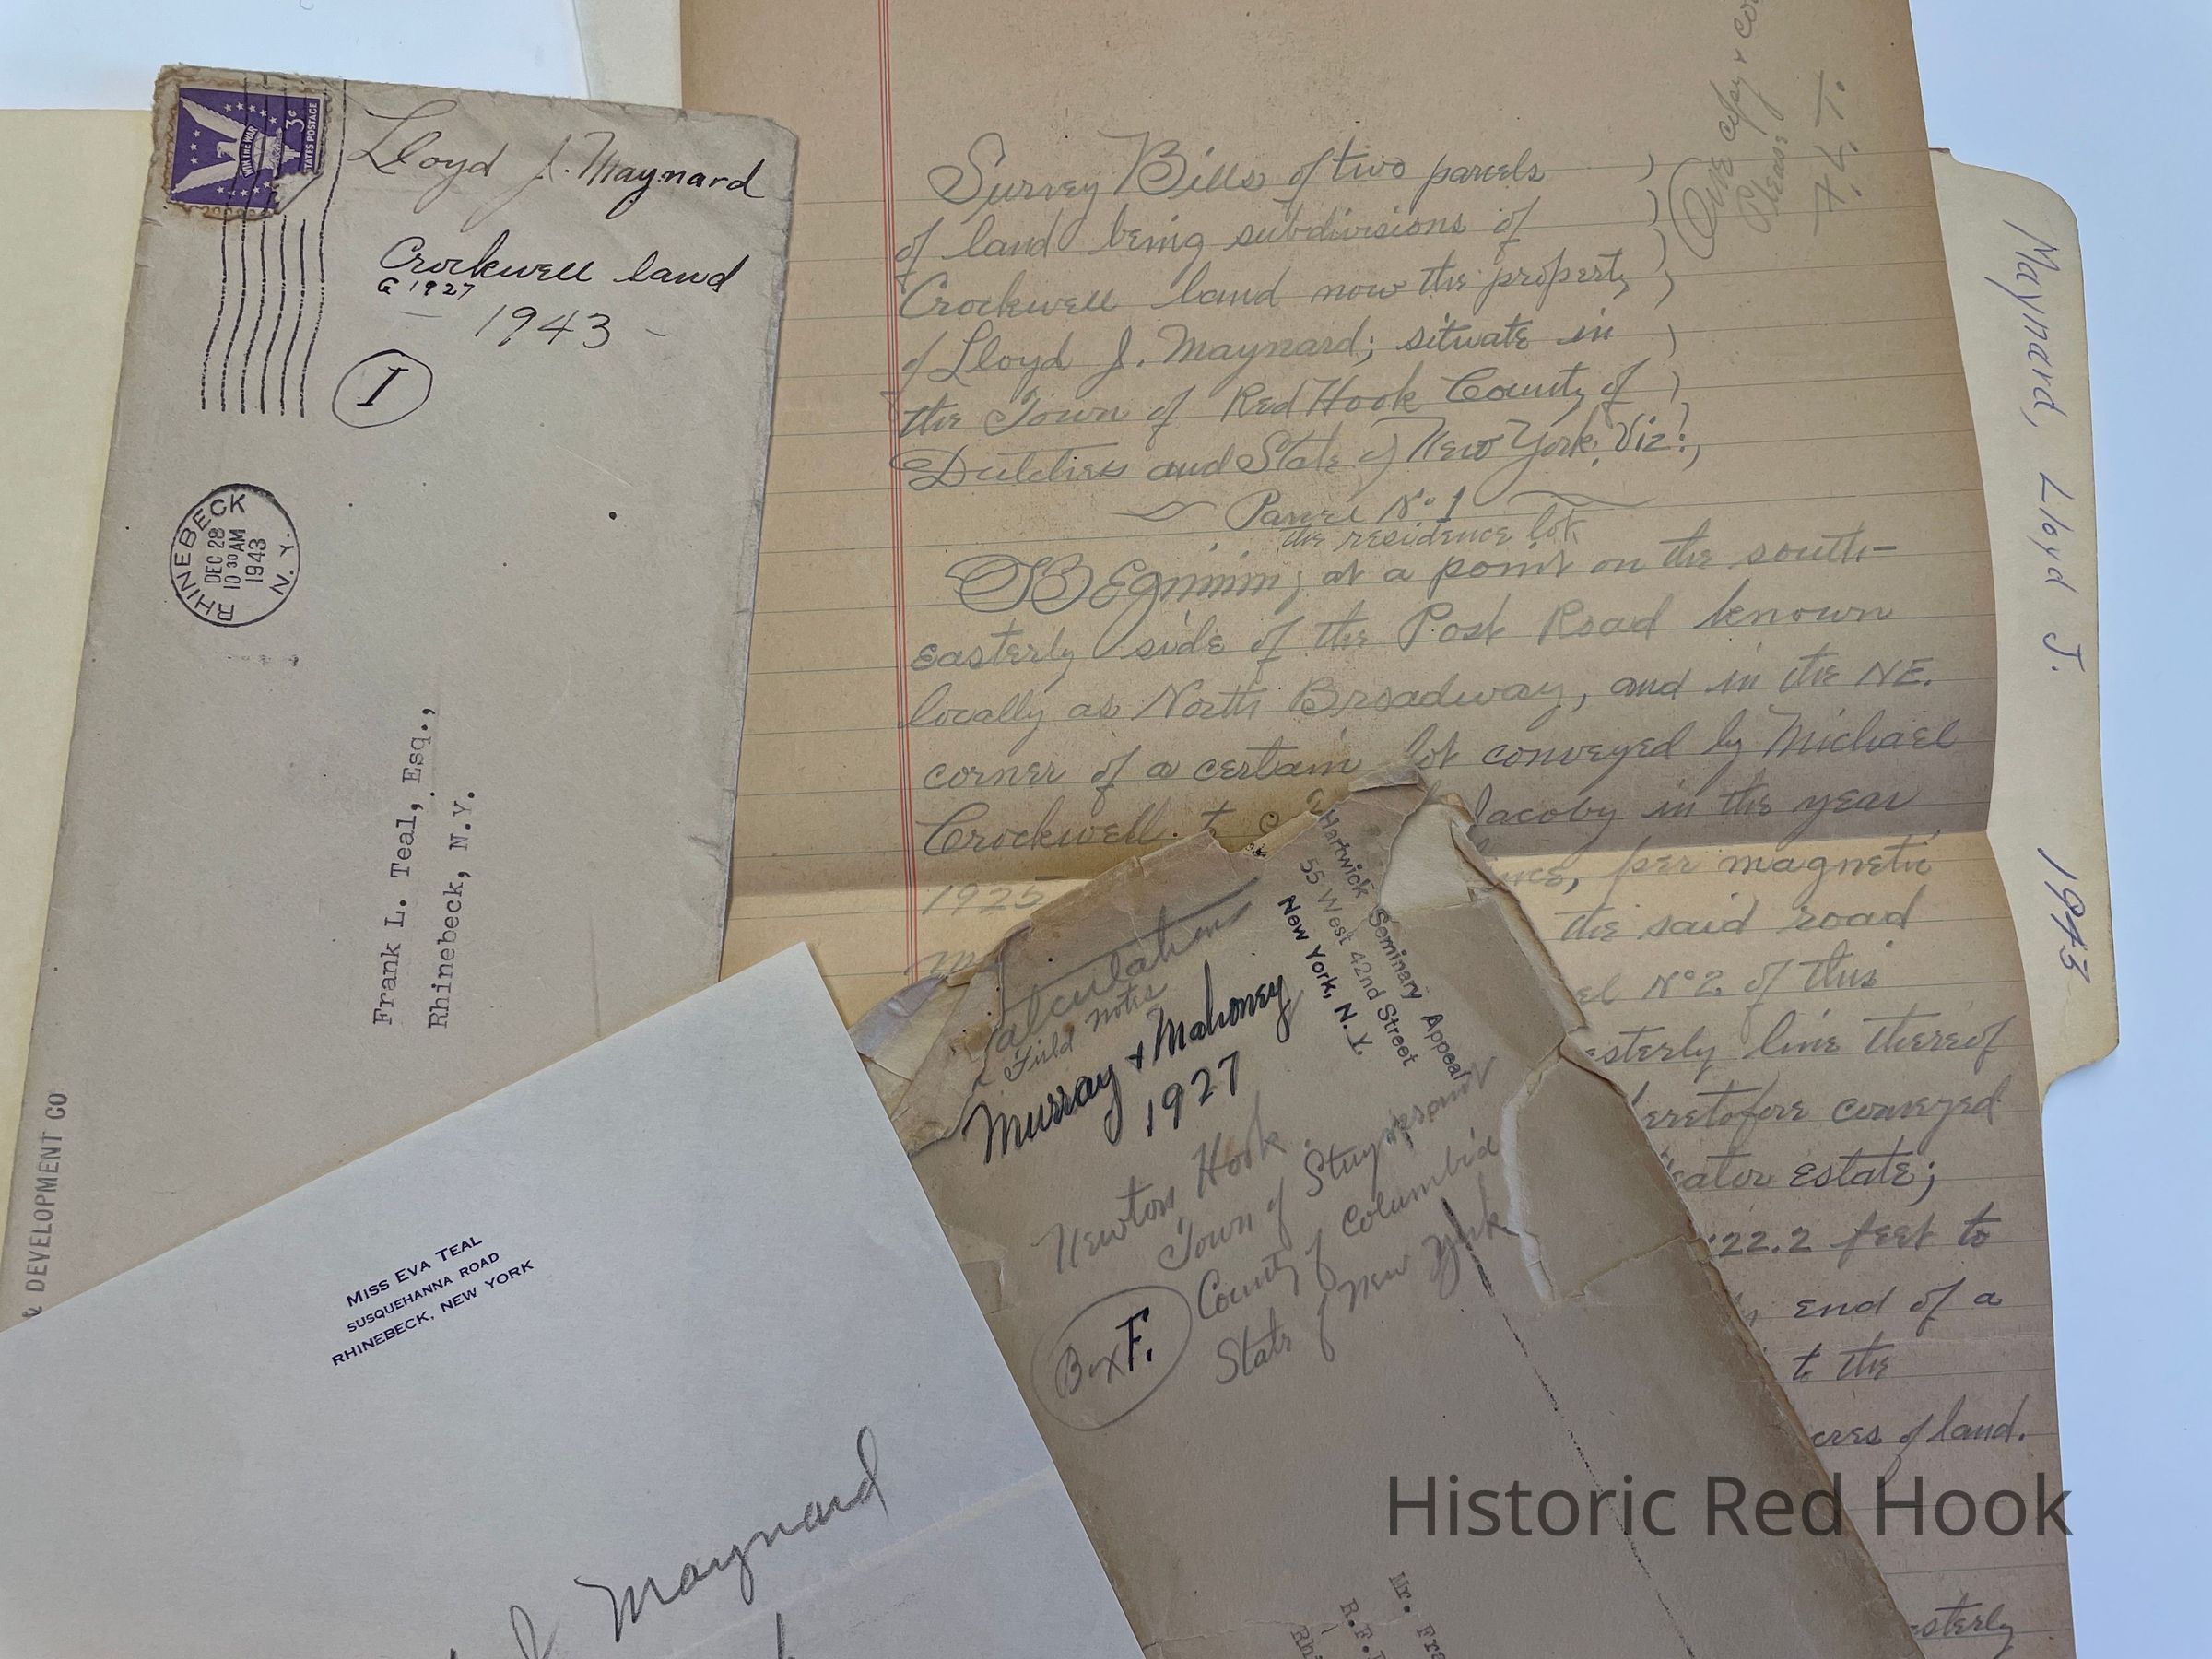 WIN THE WAR
3¢
TATES POSTAGE
Lloyd J. Maynard
Crockwell land
G 1927
- 1943 -
I
RHINEBECK
DEC 28
10 30 AM
1943
N.Y.
Frank L. Teal, Esq.,
Rhinebeck, N.Y.
& DEVELOPMENT CO
Survey Bills of two parcels
of land being subdivisions of
Crockwell land now the property
of Lloyd J. Maynard; situate in
the Town of Red Hook County of
Dutchess and State of New York, Viz!,
Parcel No. 1
the residence lot
Beginning at a point on the south-
easterly side of the Post Road known
locally as North Broadway, and in the NE.
corner of a certain lot conveyed by Michael
Crockwell to Jacoby in the year
1925 per magnetic
the said road
No 2 of this
esterly line thereof
eretofore conveyed
estate;
22.2 feet to
end of a
to the
cres of land.
esterly
One copy &
Please
F. L. T.
Maynard, Lloyd J. 1943
Calculations
Field notes
Murray & Mahoney
1927
Newton Hook
Town of Stuyvesant
County of Columbia
State of New York
Box F.
Hartwick Seminary Appeal
55 West 42nd Street
New York, N. Y.
Mr. Fra
R.F.
Rhi
MISS EVA TEAL
SUSQUEHANNA ROAD
RHINEBECK, NEW YORK
J Maynard
Historic Red Hook